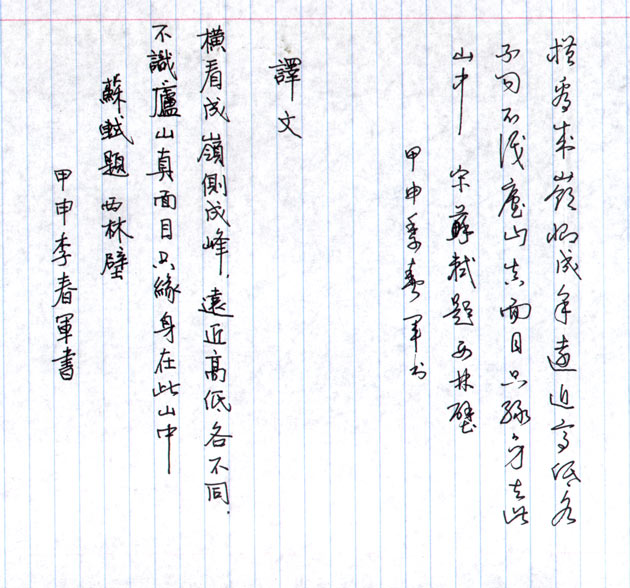 橫看成嶺側成峯遠近高低各
不同不識廬山真面目只緣身在此
山中 宋蘇軾題西林壁
甲申李春軍書
譯文
橫看成嶺側成峰，遠近高低各不同．
不識廬山真面目只緣身在此山中
蘇軾題西林壁
甲申李春軍書